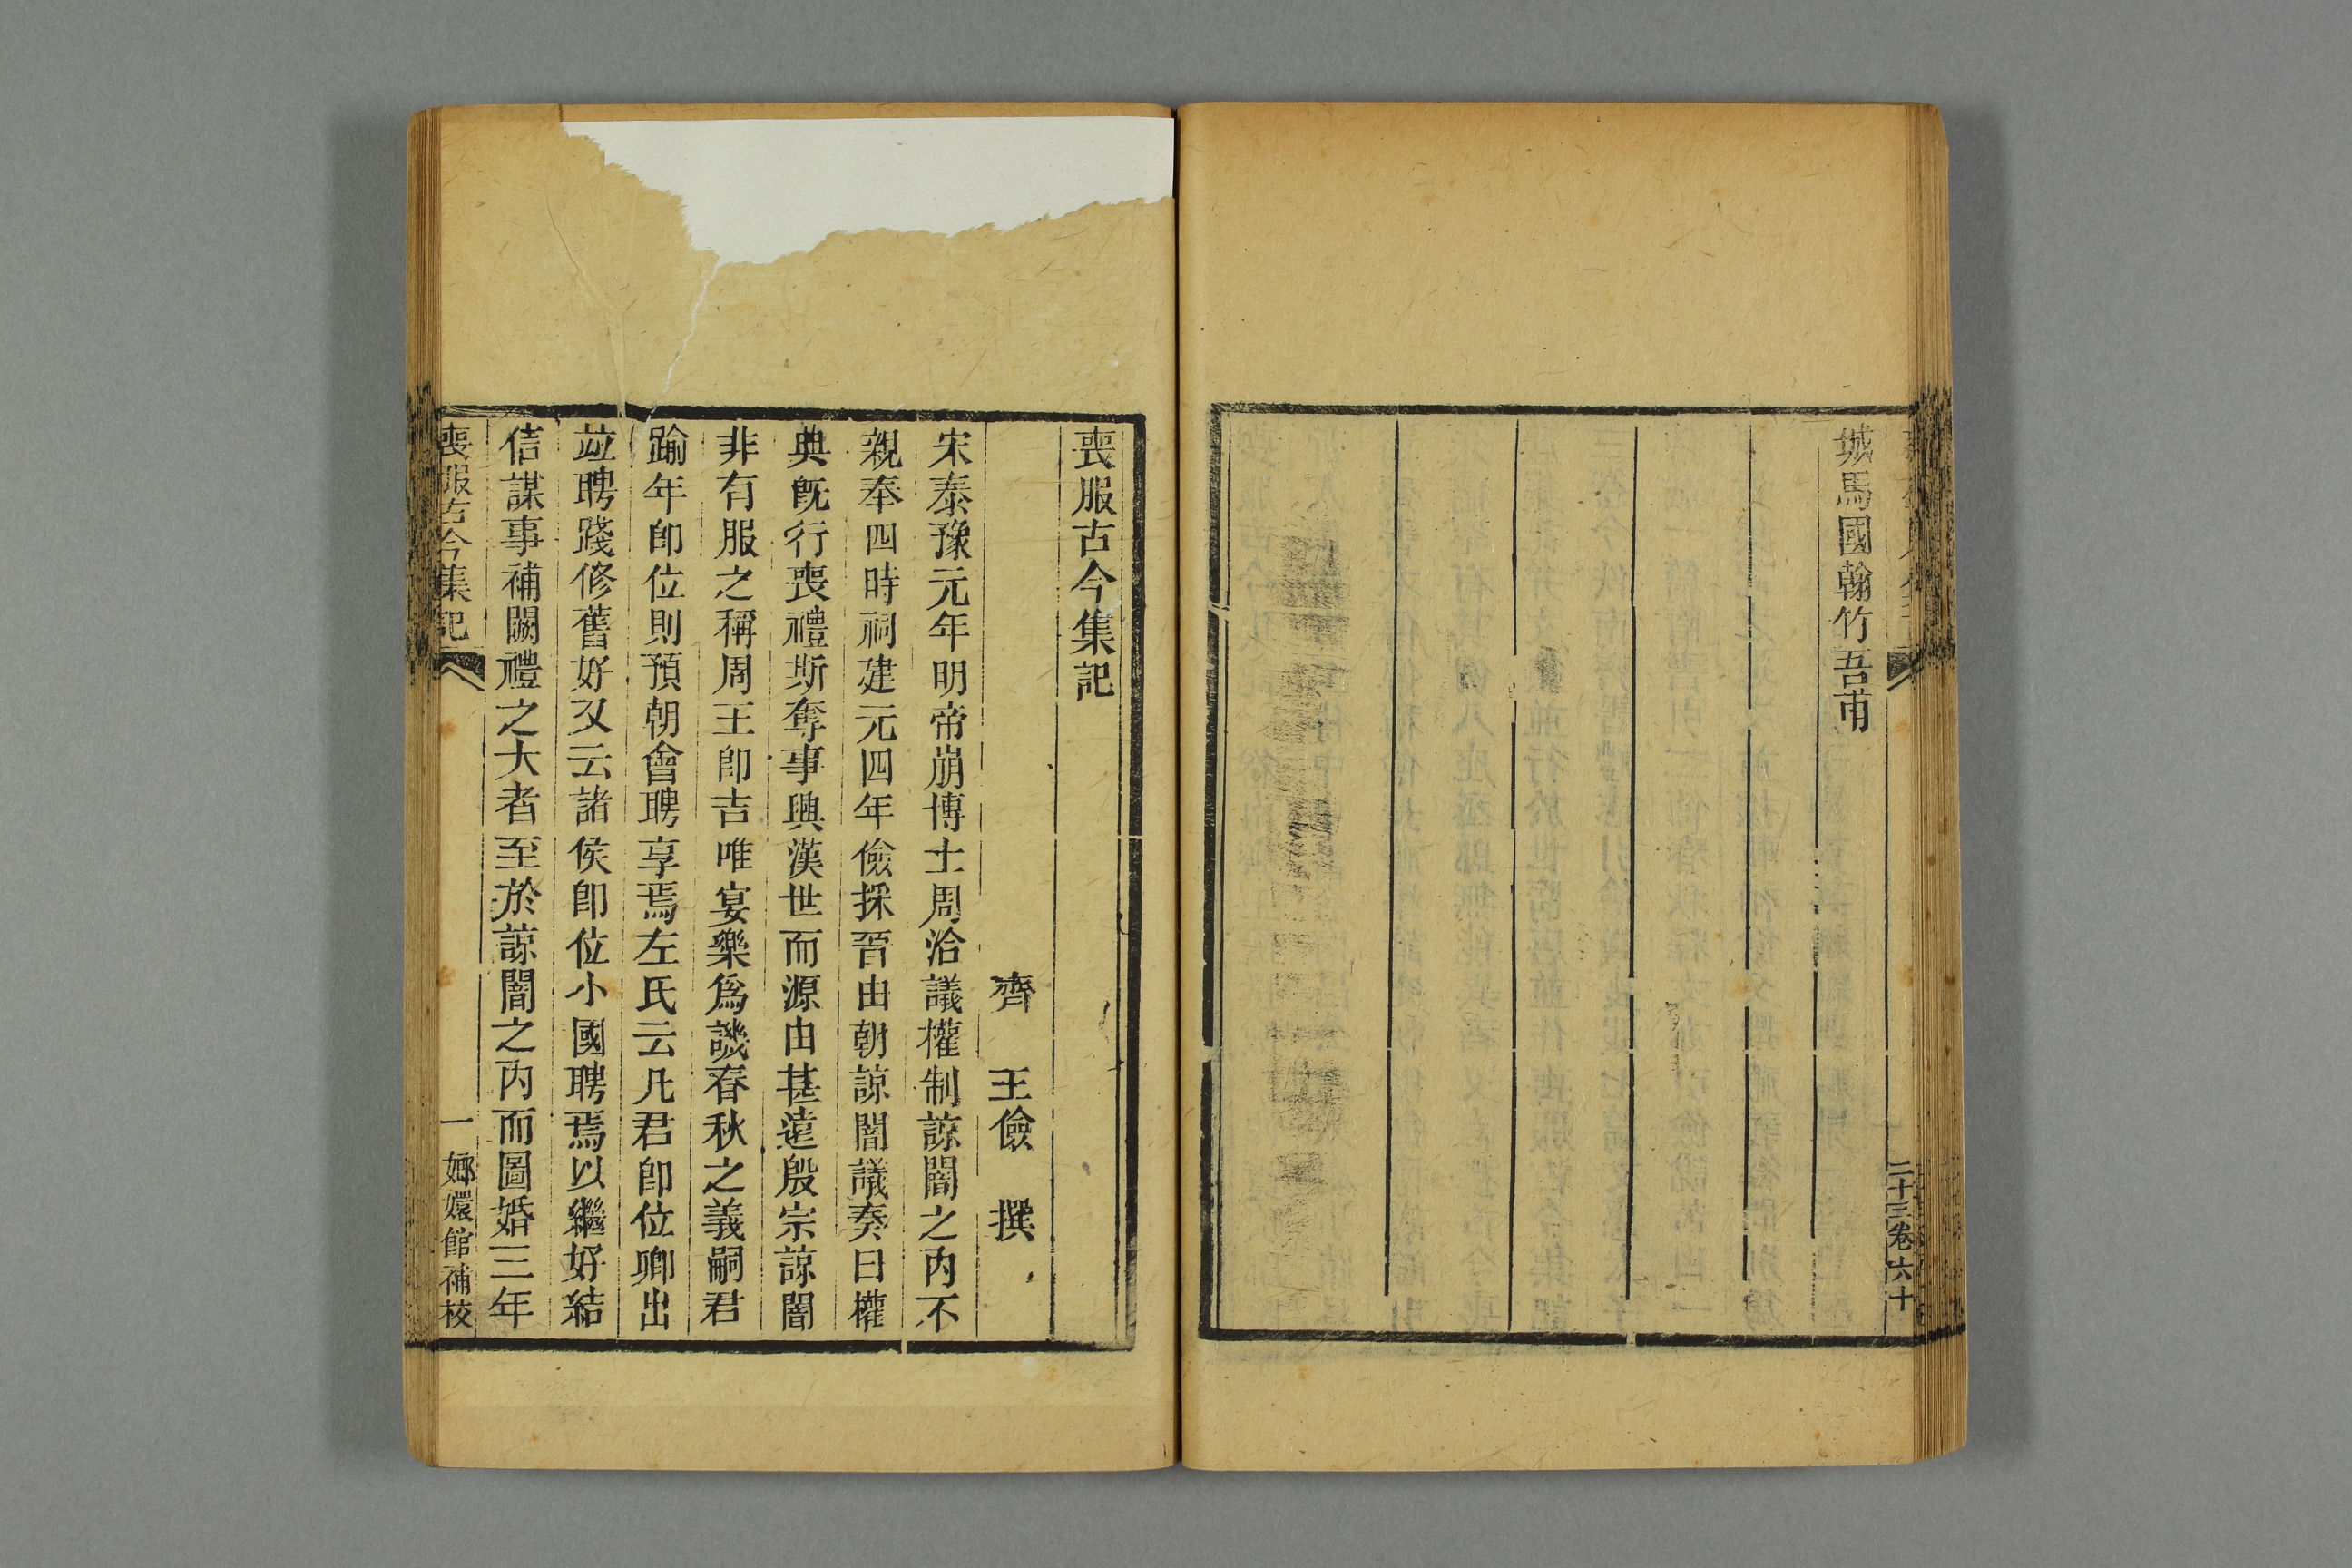 城馬國翰竹吾甫
二十三卷六十
喪服古今集記
齊 王儉 撰
宋泰豫元年明帝崩博士周洽議權制諒闇之內不
親奉四時祠建元四年儉採晉由朝諒闇議奏曰權
典旣行喪禮斯奪事興漢世而源由甚遠殷宗諒闇
非有服之稱周王卽吉唯宴樂爲譏春秋之義嗣君
踰年卽位則預朝會聘享焉左氏云凡君卽位卿出
竝聘踐修舊好又云諸侯卽位小國聘焉以繼好結
信謀事補闕禮之大者至於諒闇之內而圖婚三年
喪服古今集記 一 嫏嬛館補校